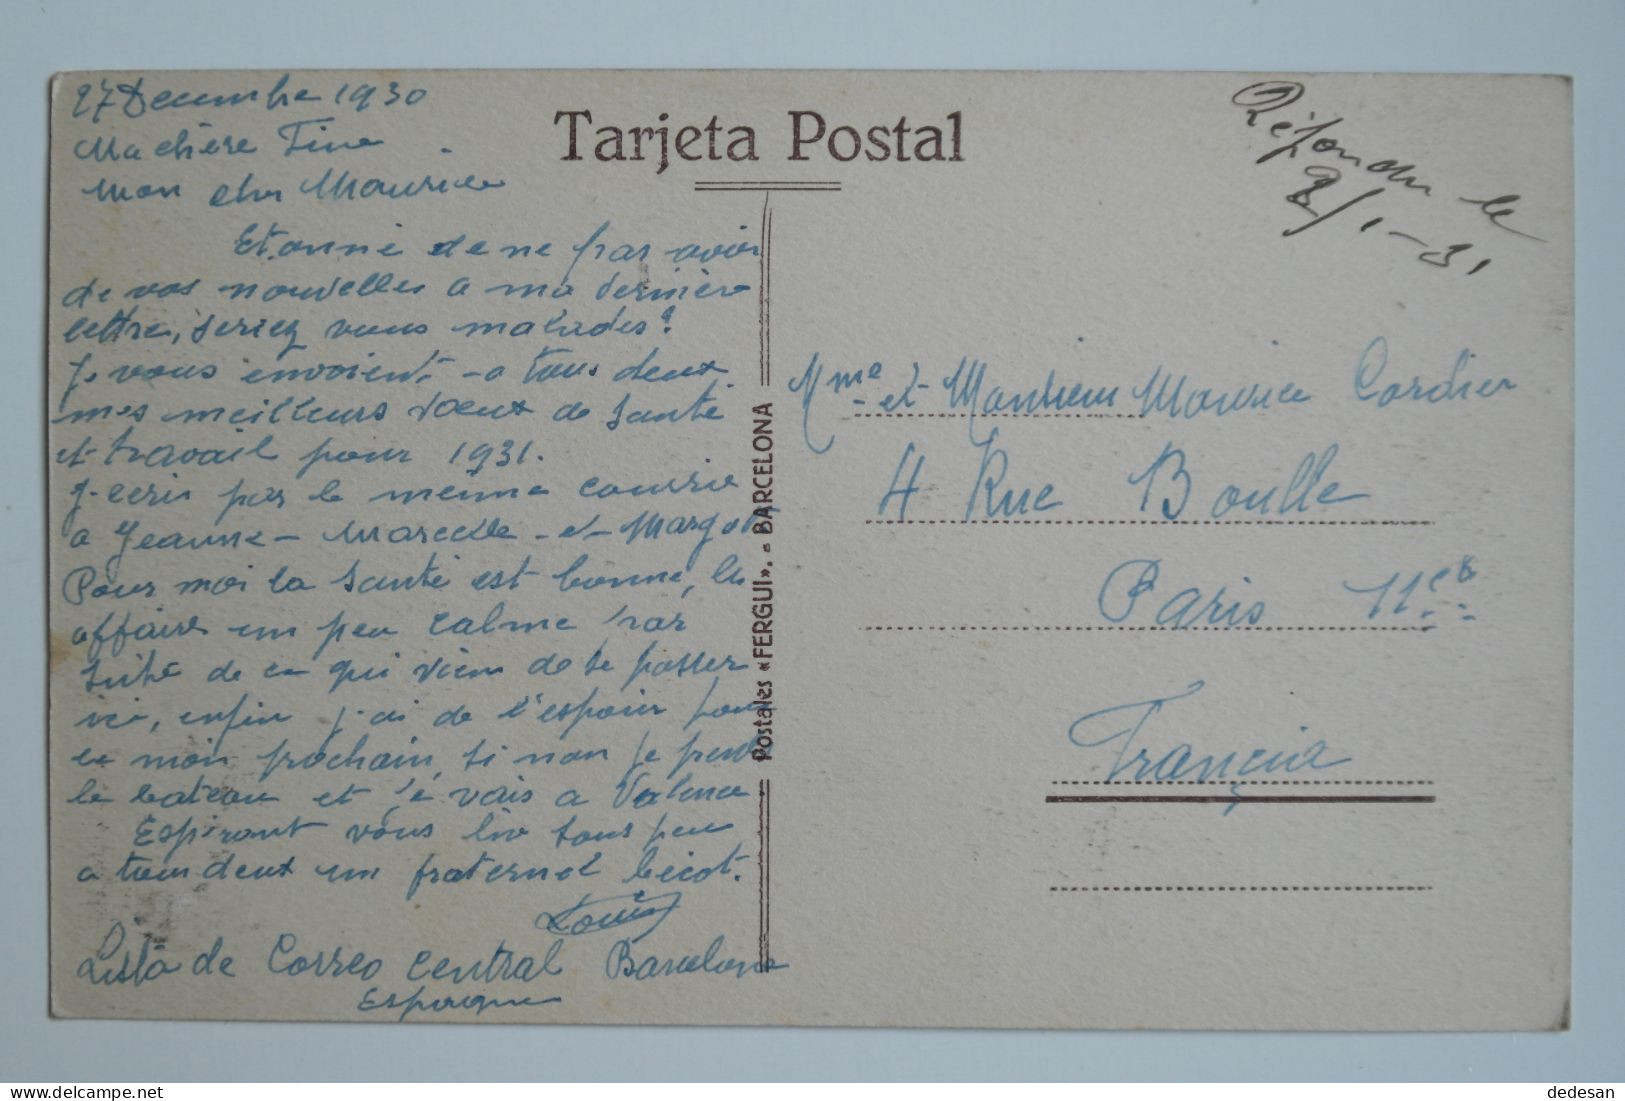 27 Decembre 1930
Ma chère Tine
Mon cher Maurice
Etonné de ne pas avoir
de vos nouvelles a ma dernière
lettre, seriez vous malades?
Je vous envoient a tous deux
mes meilleurs voeux de santé
et travail pour 1931.
J-ecris par le meme courrie
a Jeanne - Marcelle - et Margot
Pour moi la santé est bonne, les
affaires un peu calme par
suite de ce qui vien de se passer
ici, enfin j-ai de l'espoir pour
le moi prochain, si non je prend
le bateau et je vais a Valence
Espérant vous lire sous peu
a tous deux un fraternel becot.
Louis
Lista de Correo central Barcelone
Espagne
Tarjeta Postal
Postales «FERGUI». - BARCELONA
Répondu le
8/1-31
Mme et Monsieur Maurice Cordier
4 Rue Boulle
Paris 11e
Francia
dedesan